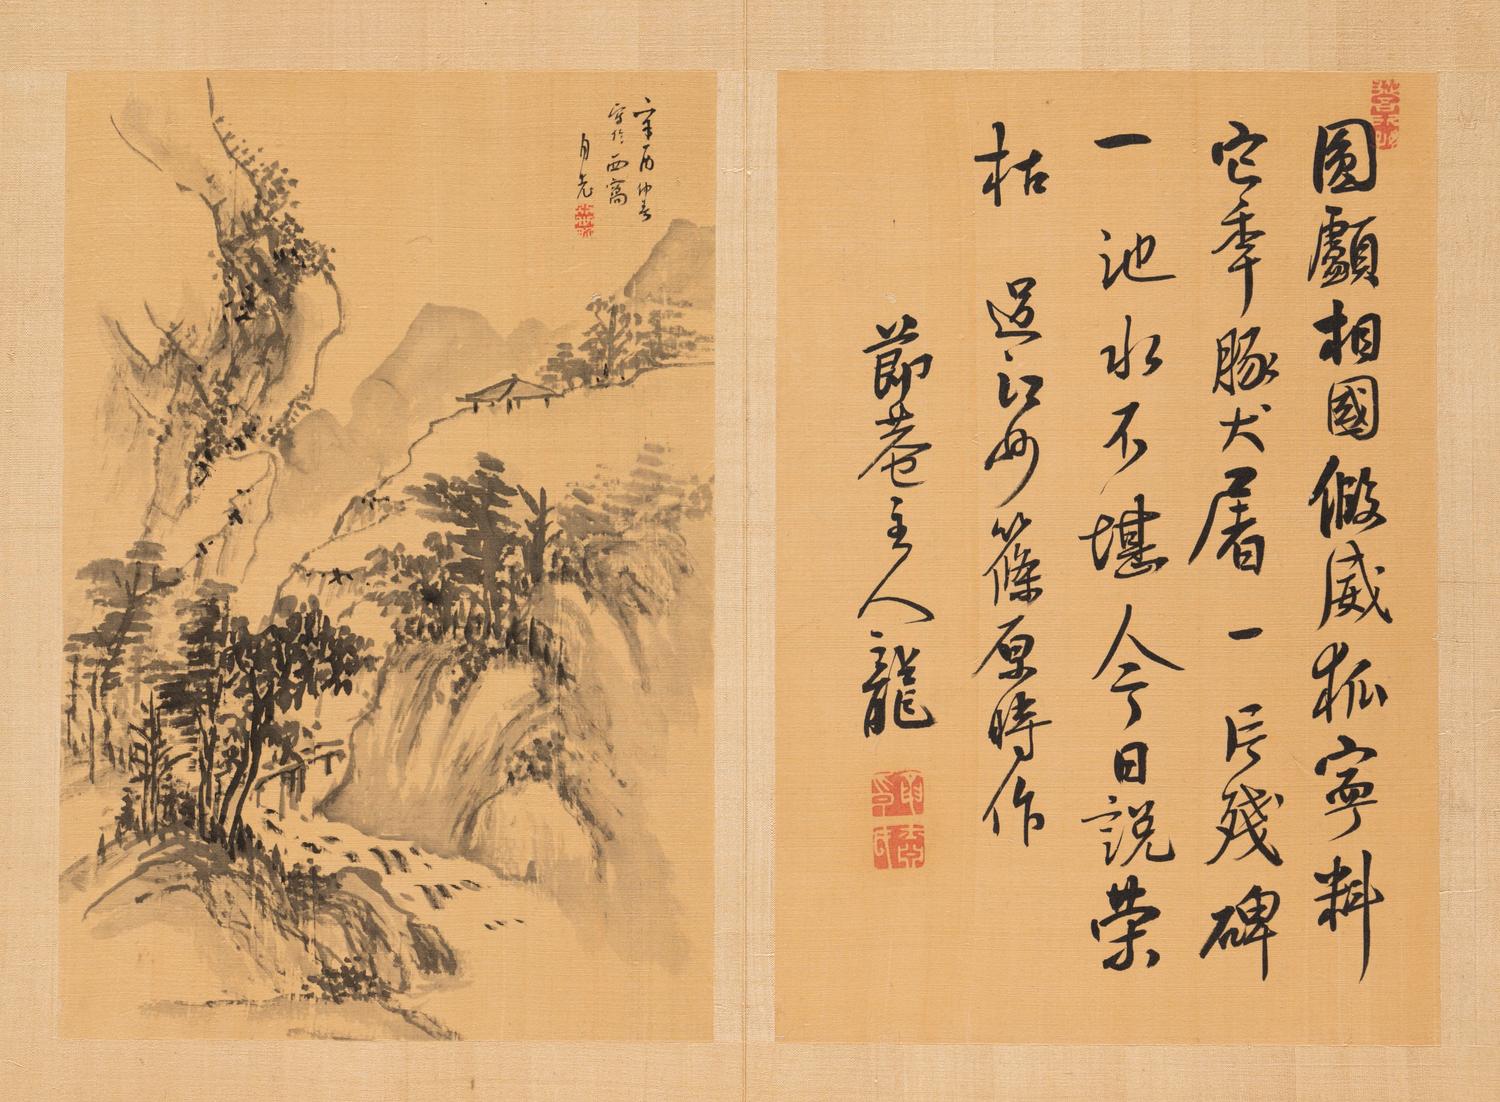 圓顱相國假威狐寧料
它季豚犬屠一片殘碑
一池水不堪人今日說榮
枯 過江州篠原時作
節菴主人龍
辛酉仲春
寫於西窩
月老